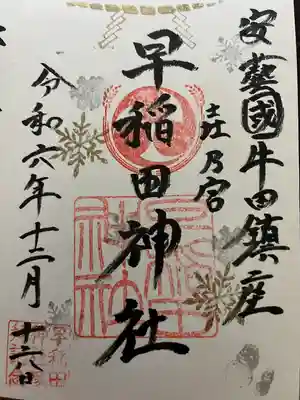 安藝國牛田鎮座
壵乃宮
早稲田神社
令和六年十二月
十六日
早稲田